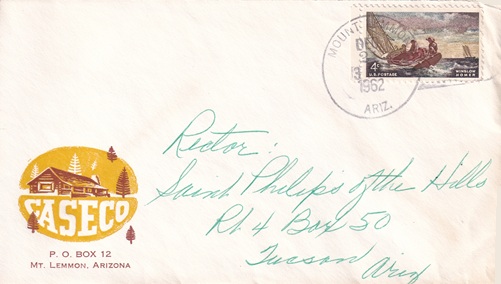 MOUNT LEMMON
DEC
3
1962
ARIZ.
4¢
U.S. POSTAGE
WINSLOW
HOMER
Rector:
Saint Philips of the Hills
Rt. 4 Box 50
Tucson
Ariz
CASECO
P. O. BOX 12
MT. LEMMON, ARIZONA